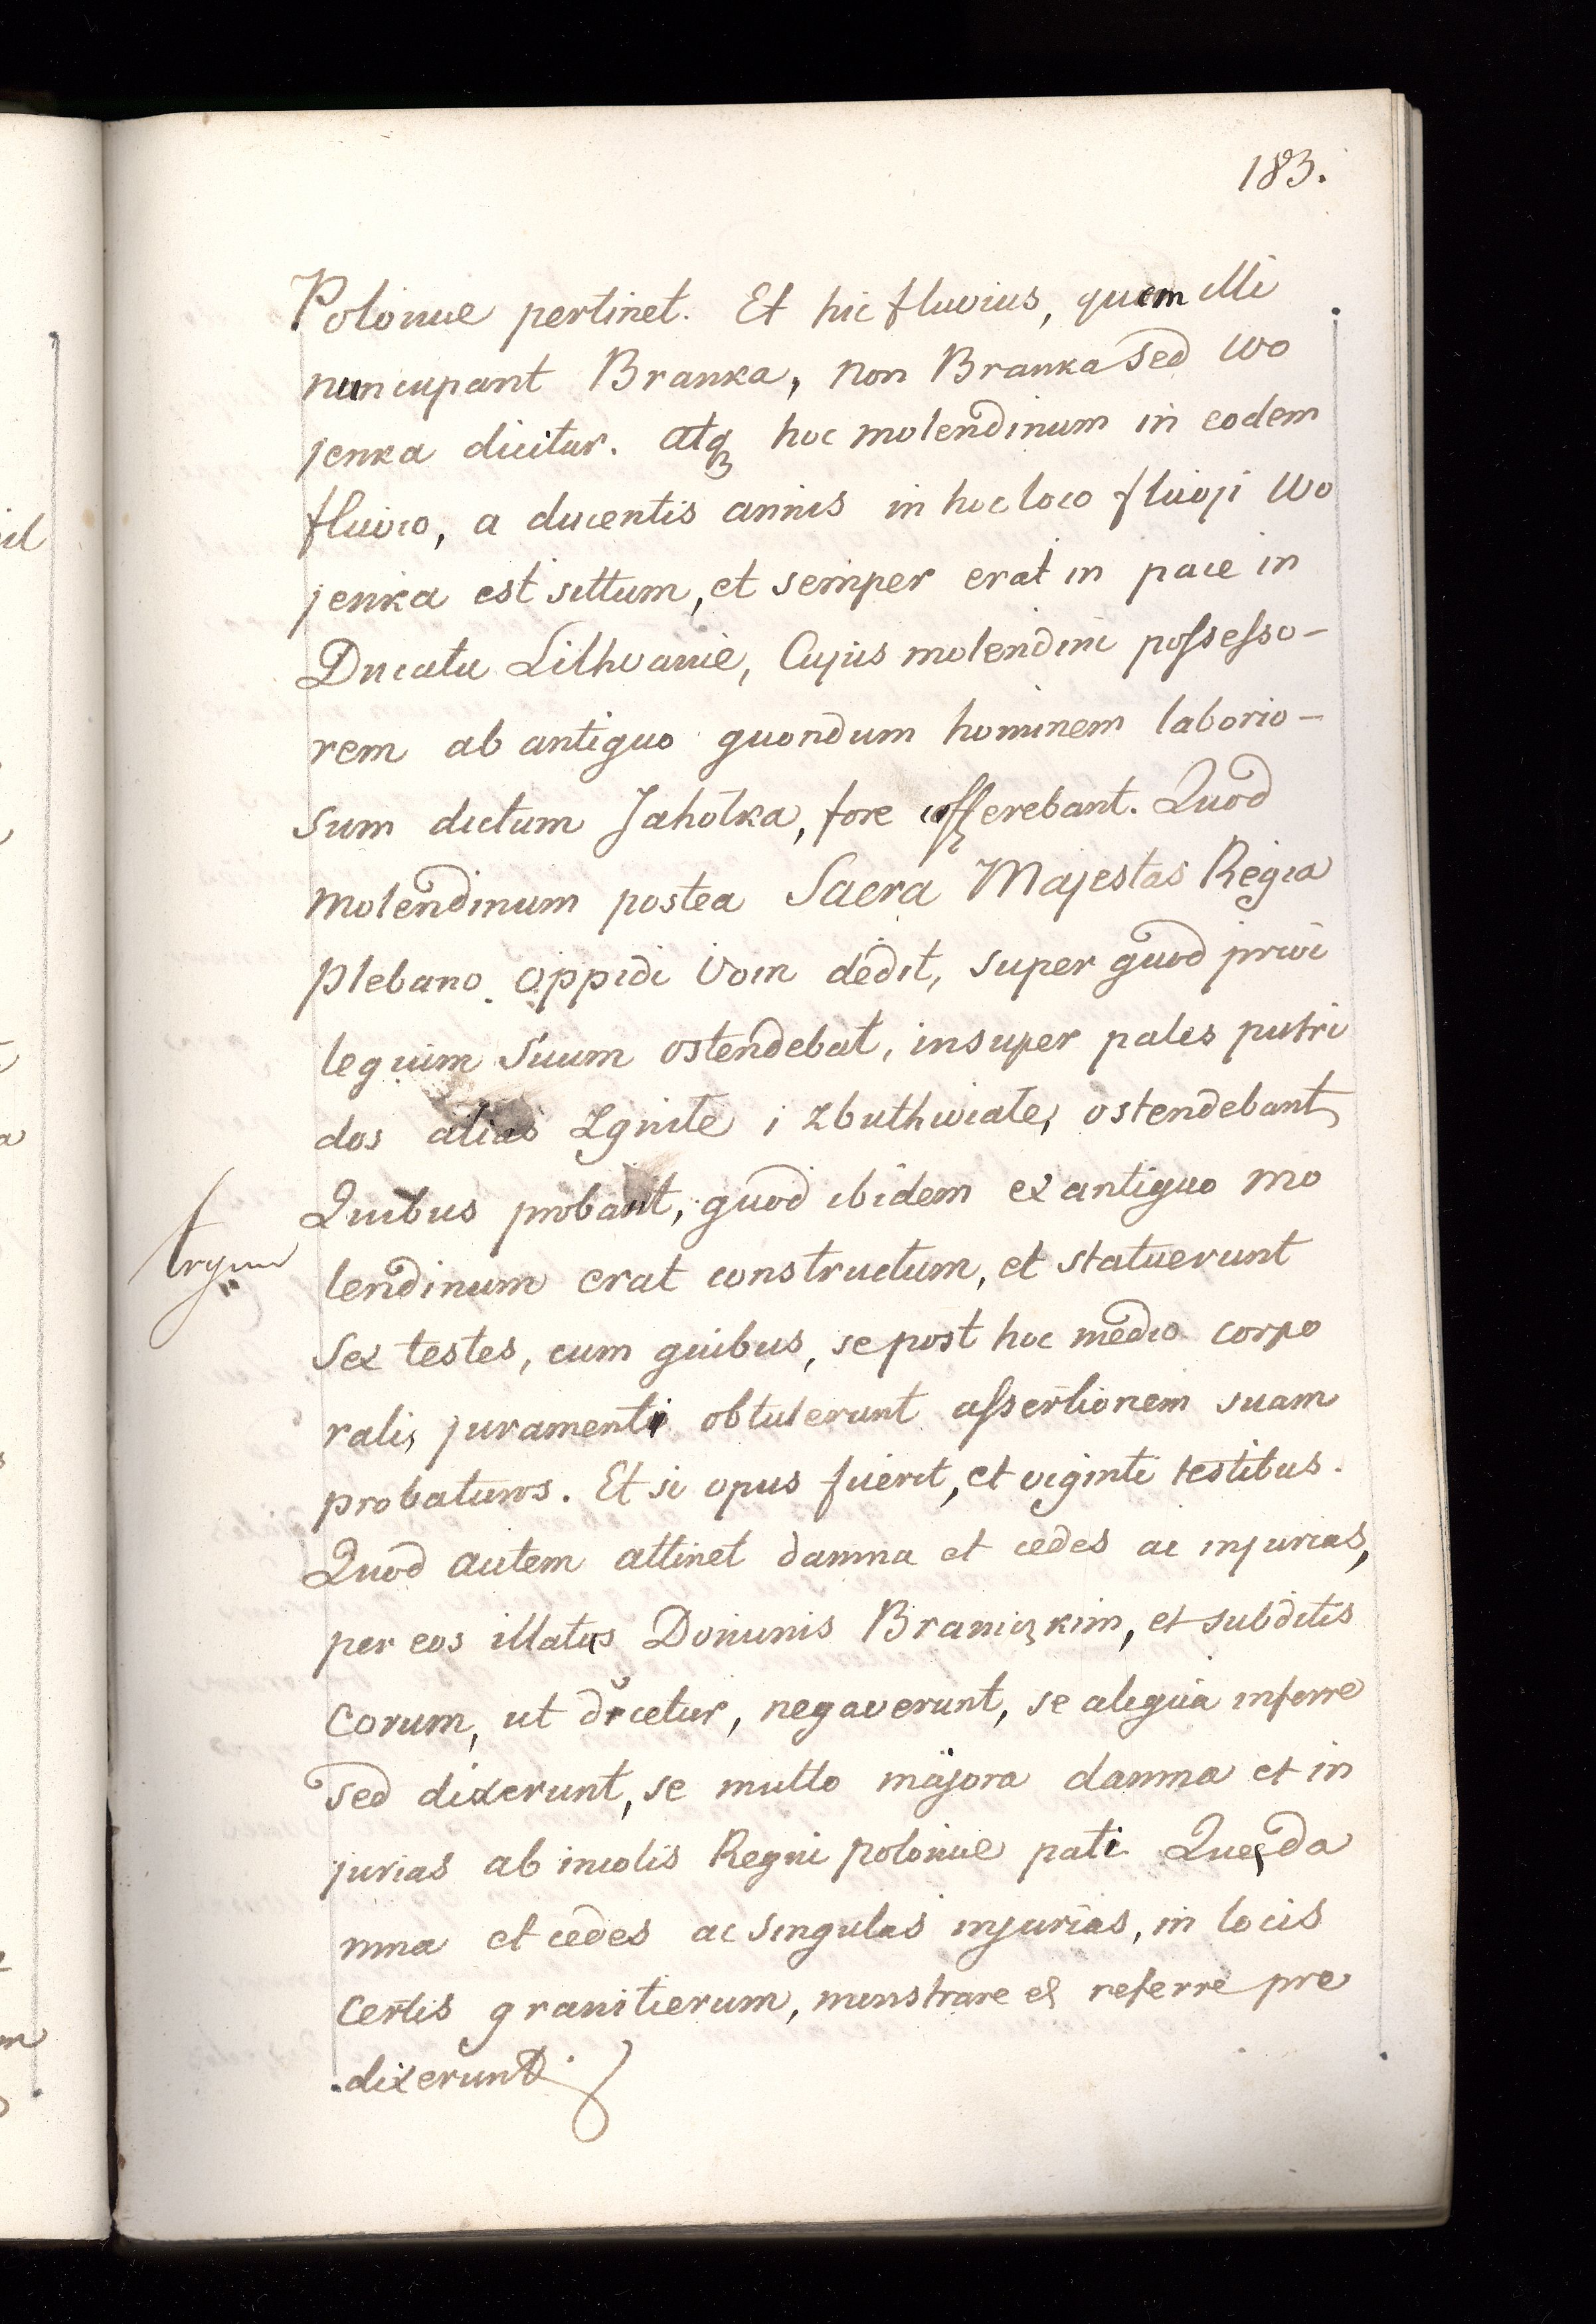 183.
Polonie pertinet. Et hic fluvius, quem illi
nuncupant Branka, non Branka sed Wo
jenka dicitur. Atq3 hoc molendinum in eodem
fluvio, a ducentis annis in hoc loco fluvji Wo
jenka est sittum, et semper erat in pace in
Ducatu Lithvanie, Cujus molendini possesso-
rem ab antiquo quondum hominem laborio-
sum dictum Jahołka, fore afferebant. Quod
molendinum postea Sacra Majestas Regia
plebano oppidi Voin dedit, super quod privi
legium suum ostendebat, insuper pales putri
dos alias Zgnite i zbuthwiate, ostendebant
Quibus probant, quod ibidem ex antiquo mo
lendinum erat constructum, et statuerunt
Sex testes, cum quibus, se post hoc medio corpo
ralis juramenti obtulerunt assertionem suam
probaturos. Et si opus fuerit, et viginti testibus.
Quod autem attinet damna et cedes ac injurias,
per eos illatas Dominis Braniczkim, et subditis
eorum, ut dicetur, negaverunt, se aliqua inferre
sed dixerunt, se multo majora damna et in
jurias ab incolis Regni polonie pati Que da
mna et cedes ac singulas injurias, in locis
certis granitierum, monstrare et referre pre
dixerunt.